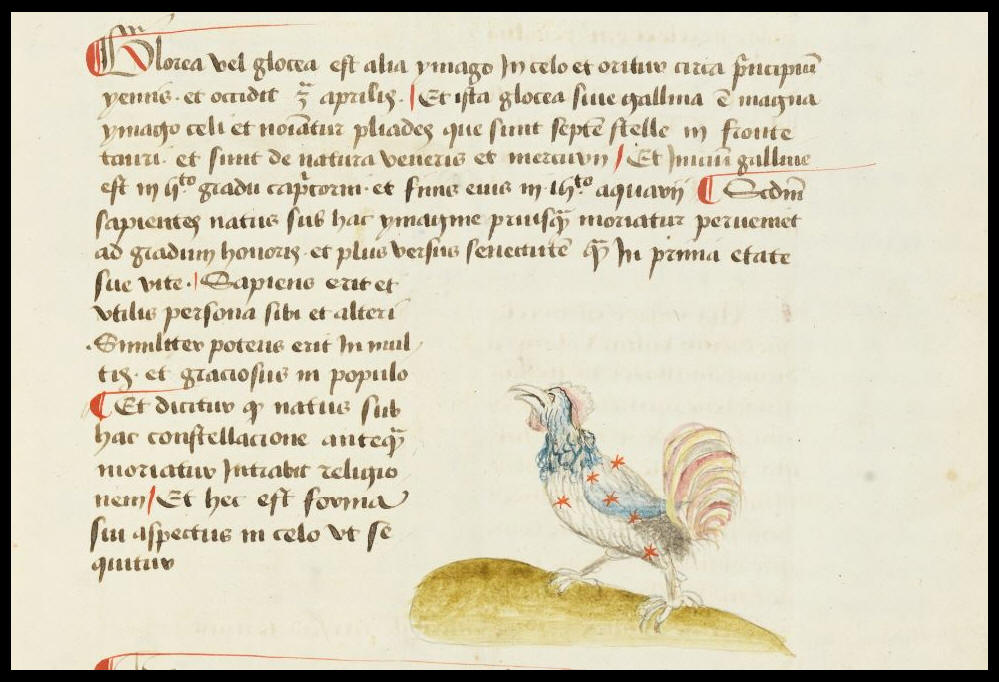 Glocea vel glocea est alia ymago In celo et oritur circa pͥncipiuꝫ
yemis · et occidit aprilis · Et ista glocea siue gallina ē magna
ymago celi et noīatur pliades que sunt septē stelle in fronte
tauri · et sunt de natura veneris et mercurij Et Iniciū galline
est in gradu capͥcorni · et finis eius in aquarij Scdm̄
sapientes natus sub hac ymagine priusqꝫ̄ moriatur perueniet
ad gradum honoris · et plus versus senectutē qꝫ̄ In prima etate
sue vite · Sapiens erit et
vtilis persona sibi et alteri
· Similiter potens erit In mul
tis · et graciosus in populo
Et dicitur ꝙ natus sub
hac constellacione anteqꝫ̄
moriatur Intrabit religio
nem Et hec est forma
sui aspectus in celo vt se
quitur